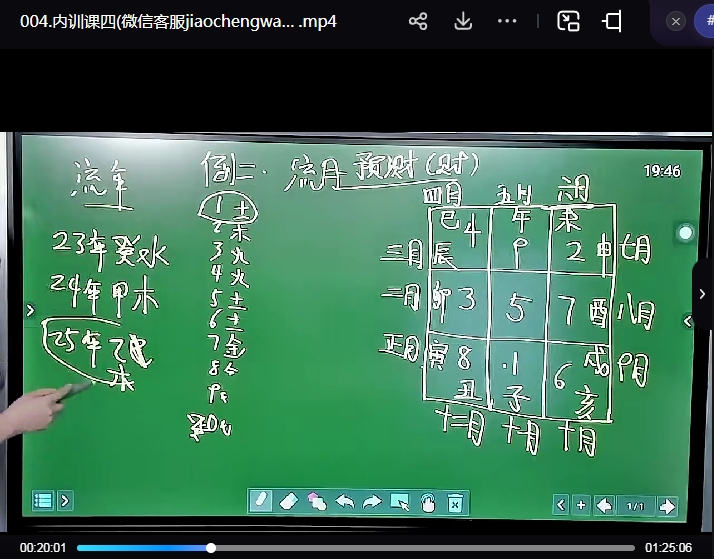 004.内训课四(微信客服jiaochengwa... .mp4
流年
例二.流月预财(财)
19:46
23年癸水
24年甲木
25年乙
木
1土
2木
3火
4火
5土
6土
7金
8
9
10
四月 五月 六月
巳4 午9 未2 申 七月
三月 辰
二月 卯3 5 7酉 八月
正月 寅8 1 6戌 九月
丑 子 亥
十二月 十一月 十月
1/1
00:20:01
01:25:06